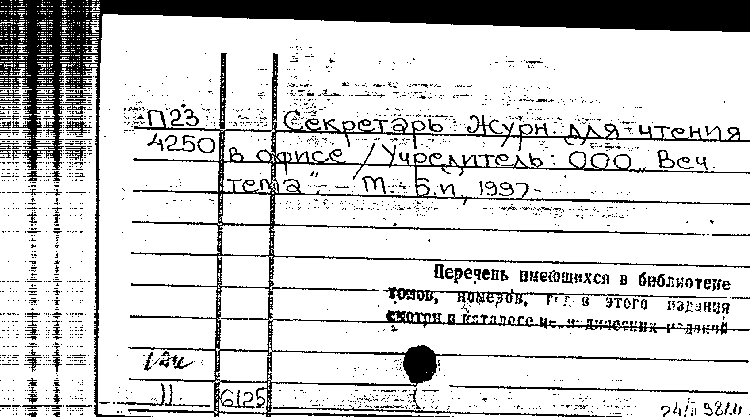 П23
4250
Секретарь: Журн. для чтения
в офисе / Учредитель: ООО „Веч.
тема". – М.: Б.и., 1997-
Перечень имеющихся в библиотеке
томов, номеров, этого издания
смотри в каталоге изданий
11
6125